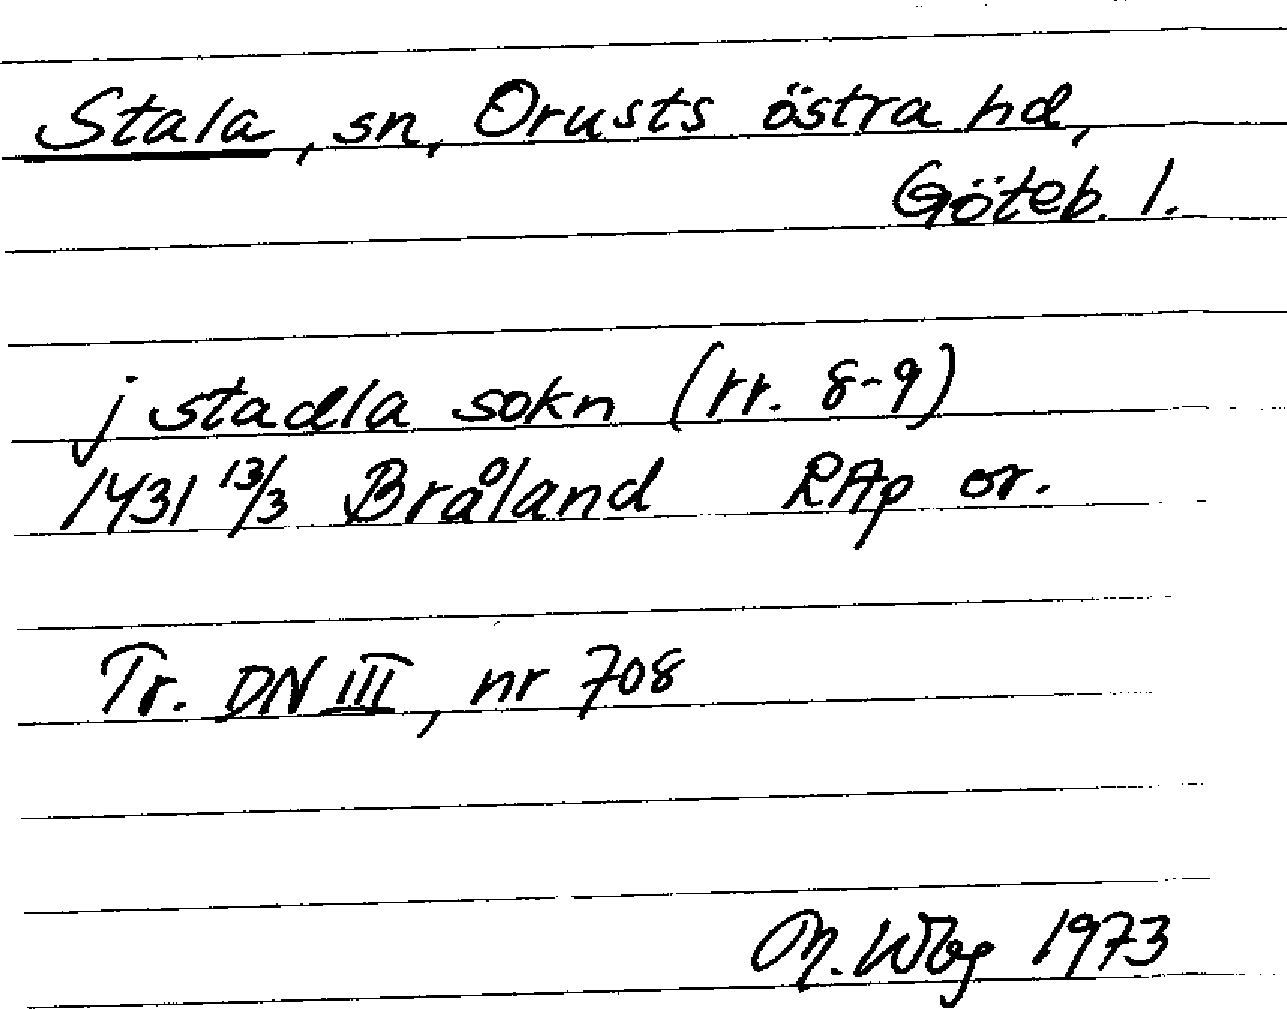 Stala, sn, Orusts östra hd,
Göteb. l.
j stadla sokn (rr. 8-9)
1431 13/3 Bråland RAp or.
Tr. DN III, nr 708
M. Wbg 1973